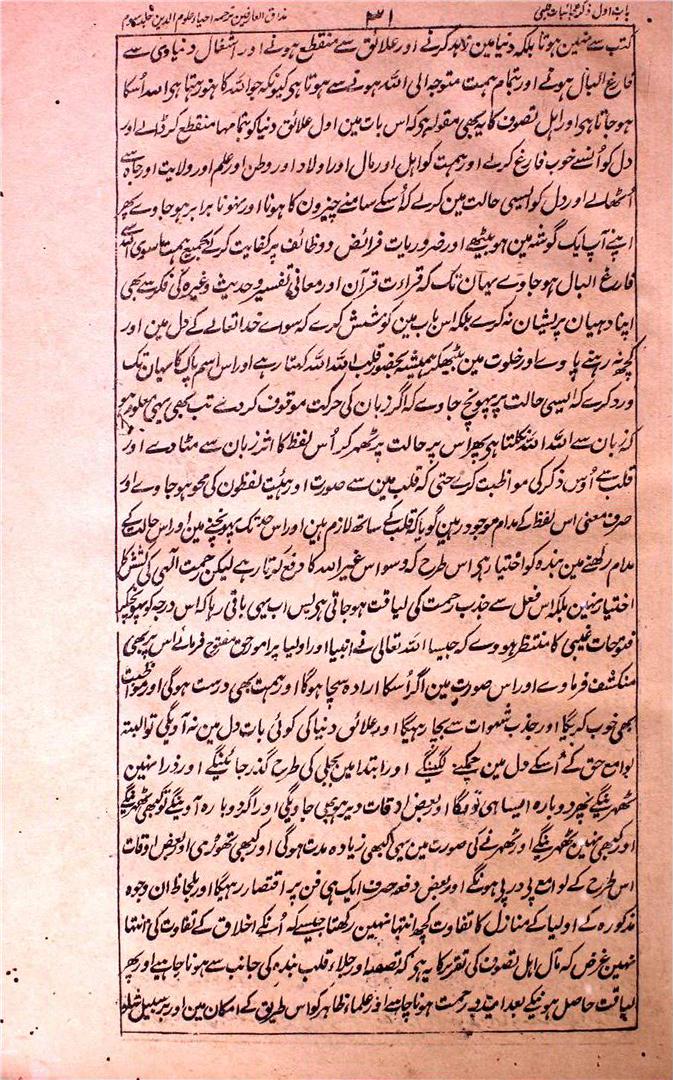 باب اول ذکر عجائبات قلبی ۳۱ مذاق العارفین ترجمہ احیاء علوم الدین جلد سوم
کتب سے نہین ہوتا بلکہ دنیا مین زہد کرنے اور علائق سے منقطع ہونے اور اشغال دنیاوی سے
فارغ البال ہونے اور بتمام ہمت متوجہ الی اللہ ہونے سے ہوتا ہی کیونکہ جو اللہ کا ہو رہتا ہی اللہ اُسکا
ہو جاتا ہی اور اہل تصوف کا یہ بھی مقولہ ہی کہ اس بات مین اول علائق دنیا کو بتمامہا منقطع کر ڈالے اور
دل کو اُنسے خوب فارغ کرلے اور ہمت کو اہل اور مال اور اولاد اور وطن اور علم اور ولایت اور جاہ سے
اُٹھالے اور دل کو ایسی حالت مین کرلے کہ اُسکے سامنے چیزون کا ہونا اور نہونا برابر ہو جاوے پھر
اپنے آپ ایک گوشہ مین ہو بیٹھے اور ضروریات فرائض و وظائف پر کفایت کرکے بجمیع ہمت ماسوی اللہ سے
فارغ البال ہو جاوے یہان تک کہ قراءت قرآن اور معانی تفسیر و حدیث وغیرہ کی فکر سے بھی
اپنا دہیان پریشان نہ کرے بلکہ اس باب مین کوشش کرے کہ سواے خدا تعالےٰ کے دل مین اور
کچھ نہ رہنے پاوے اور خلوت مین بیٹھکر ہمیشہ بحضور قلب اللہ اللہ کہتا رہے اور اس اسم پاک کا یہان تک
ورد کرے کہ ایسی حالت پر پہونچ جاوے کہ اگر زبان کی حرکت موقوف کردے تب بھی یہی معلوم ہو
کہ زبان سے اللہ اللہ نکلتا ہی پھر اس پر حالت پر ٹھہر کر اُس لفظ کا اثر زبان سے مٹا دے اور
قلب سے اُوس ذکر کی مواظبت کرے حتی کہ قلب مین سے صورت اور ہیئت لفظون کی محو ہو جاوے اور
صرف معنی اس لفظ کے مدام موجود رہین گویا کہ قلب کے ساتھ لازم ہین اور اس حد تک پہونچنے مین اور اس حالت کے
مدام رکھنے مین بندہ کو اختیار ہی اس طرح کہ وسواس غیر اللہ کا دفع کرتا رہے لیکن رحمت الٰہی کی کشش کا
اختیار نہین بلکہ اس فعل سے جذب رحمت کی لیاقت ہو جاتی ہی پس اب یہی باقی رہا کہ اس درجہ کو پہونچکر
فتوحات غیبی کا منتظر ہووے کہ جیسا اللہ تعالی نے انبیا اور اولیا پر امور حق مفتوح فرمائے اس پر بھی
منکشف فرماوے اور اس صورت مین اگر اُسکا ارادہ سچا ہوگا اور ہمت بھی درست ہوگی اور مواظبت
بھی خوب کریگا اور جذب شہوات سے بچا رہیگا اور علائق دنیا کی کوئی بات دل مین نہ آویگی تو البتہ
لوامع حق کے اُسکے دل مین چمکنے لگینگے اور ابتدا مین بجلی کی طرح گذر جائینگے اور ذرا نہین
ٹھہرینگے پھر دوبارہ ایسا ہی ہوگا اور بعض اوقات دیر ہو بھی جاویگی اور اگر دوبارہ آوینگے تو کبھی ٹھہرینگے
اور کبھی نہین ٹھہرینگے اور ٹھہرنے کی صورت مین بھی کبھی زیادہ مدت ہوگی اور کبھی تھوڑی اور بعض اوقات
اس طرح کے لوامع پی در پی ہونگے اور بعض دفعہ صرف ایک ہی فن پر اقتصار رہیگا اور بلحاظ ان وجوہ
مذکورہ کے اولیا کے منازل کا تفاوت کچھ انتہا نہین رکھتا جیسے کہ اُنکے اخلاق کے تفاوت کی انتہا
نہین غرض کہ مآل اہل تصوف کی تقریر کا یہ ہی کہ تصفیہ اور جلاء قلب بندہ کی جانب سے ہونا چاہیے اور پھر
لیاقت حاصل ہونیکے بعد امیدوار رحمت ہونا چاہیے اور علماء ظاہر کو اس طریق کے امکان مین اور بر سبیل